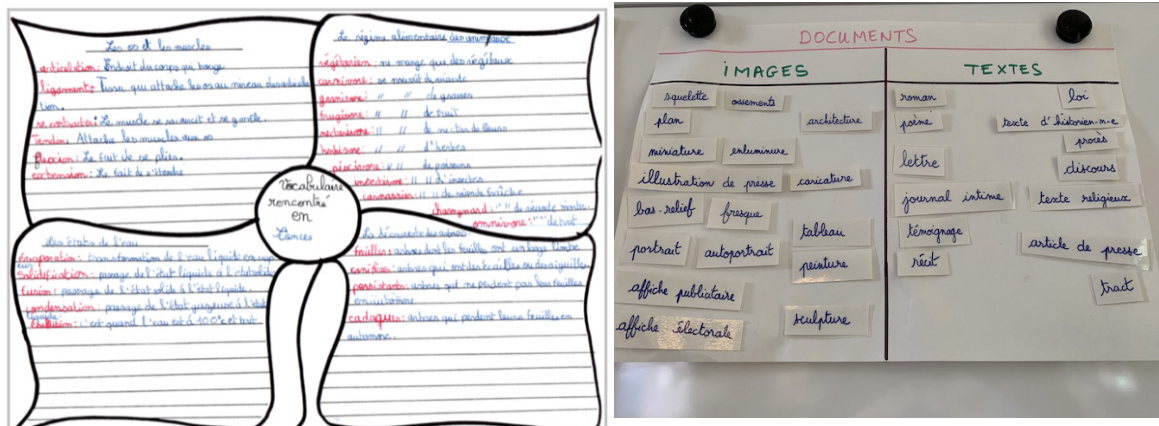 Les os et les muscles
articulation: Endroit du corps qui bouge
ligament: Tissu qui attache les os au niveau des articula
tion.
se contracter: Le muscle se raccourcit et se gonfle.
Tendon: Attache les muscles aux os
flexion: Le fait de se plier.
extension: Le fait de s'étendre
Le régime alimentaire des animaux
végétarien: ne mange que des végétaux
carnivore: se nourrit de viande
granivore: " " de graines
frugivore: " " de fruit
nectarivore: " " de nectar de fleurs
herbivore: " " d'herbes
piscivore: " " de poissons
insectivore: " " d'insectes
carnassier: " " de viande fraîche
charognard: " " de viande morte
omnivore: " " de tout
Vocabulaire
rencontré
en
Sciences
Les états de l'eau
évaporation: transformation de l'eau liquide en
Solidification: passage de l'état liquide à l'état solide
fusion: passage de l'état solide à l'état liquide.
condensation: passage de l'état gazeux à l'état
liquide
ébullition: c'est quand l'eau est à 100°c et bout.
La découverte des arbres
feuillus: arbres dont les feuilles ont un large limbe
conifères: arbres qui ont des écailles ou des aiguilles
persistants: arbres qui ne perdent pas leurs feuilles
en automne
caduques: arbres qui perdent leurs feuilles en
automne.
DOCUMENTS
IMAGES
squelette ossements
plan architecture
miniature enluminure
illustration de presse caricature
bas-relief fresque
tableau
portrait autoportrait
peinture
affiche publicitaire
sculpture
affiche électorale
TEXTES
roman loi
poème texte d'historien-n-e
procès
lettre discours
journal intime texte religieux
témoignage article de presse
récit
tract